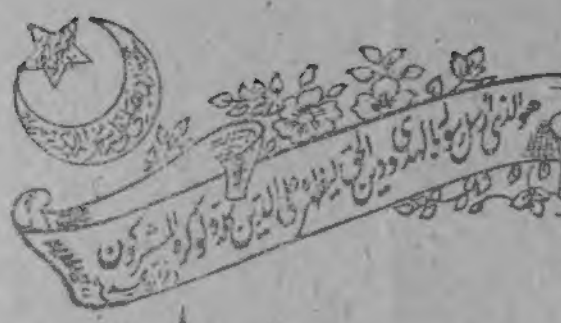 هو الذي ارسل رسوله بالهدى ودين الحق ليظهره على الدين كله ولو كره المشركون